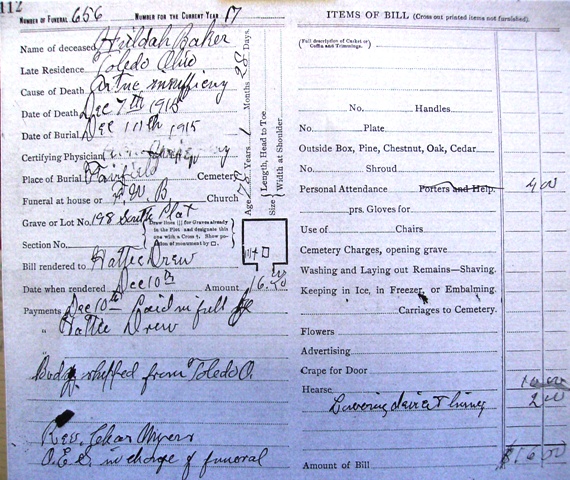 112
NUMBER OF FUNERAL 656 NUMBER FOR THE CURRENT YEAR 17
Name of deceased Huldah Baker
Late Residence Toledo Ohio
Cause of Death
Date of Death Dec 7th 1915
Date of Burial Dec 11th 1915
Certifying Physician
Place of Burial Fairfield Cemetery
Funeral at house or Church
Grave or Lot No. 198 South Plat
Draw lines ||| for Graves already in the Plot and designate this one with a Cross †. Show position of monument by □.
Section No.
Bill rendered to Hattie Drew
Date when rendered Dec 10th Amount 16.00
Payments Dec 10th Paid in full
" Hattie Drew
Body shipped from Toledo O.
Rev. Myers
O.E.S. in charge of funeral
Age 78 Years 1 Months 28 Days.
Size { Length, Head to Toe
Width at Shoulder
ITEMS OF BILL (Cross out printed items not furnished).
(Full description of Casket or Coffin and Trimmings.)
No. Handles
No. Plate
Outside Box, Pine, Chestnut, Oak, Cedar
No. Shroud
Personal Attendance Porters and Help. 4 00
prs. Gloves for
Use of Chairs
Cemetery Charges, opening grave
Washing and Laying out Remains—Shaving.
Keeping in Ice, in Freezer, or Embalming.
Carriages to Cemetery.
Flowers
Advertising
Crape for Door
Hearse 10 00
Lowering device & lining 2 00
Amount of Bill $16 00